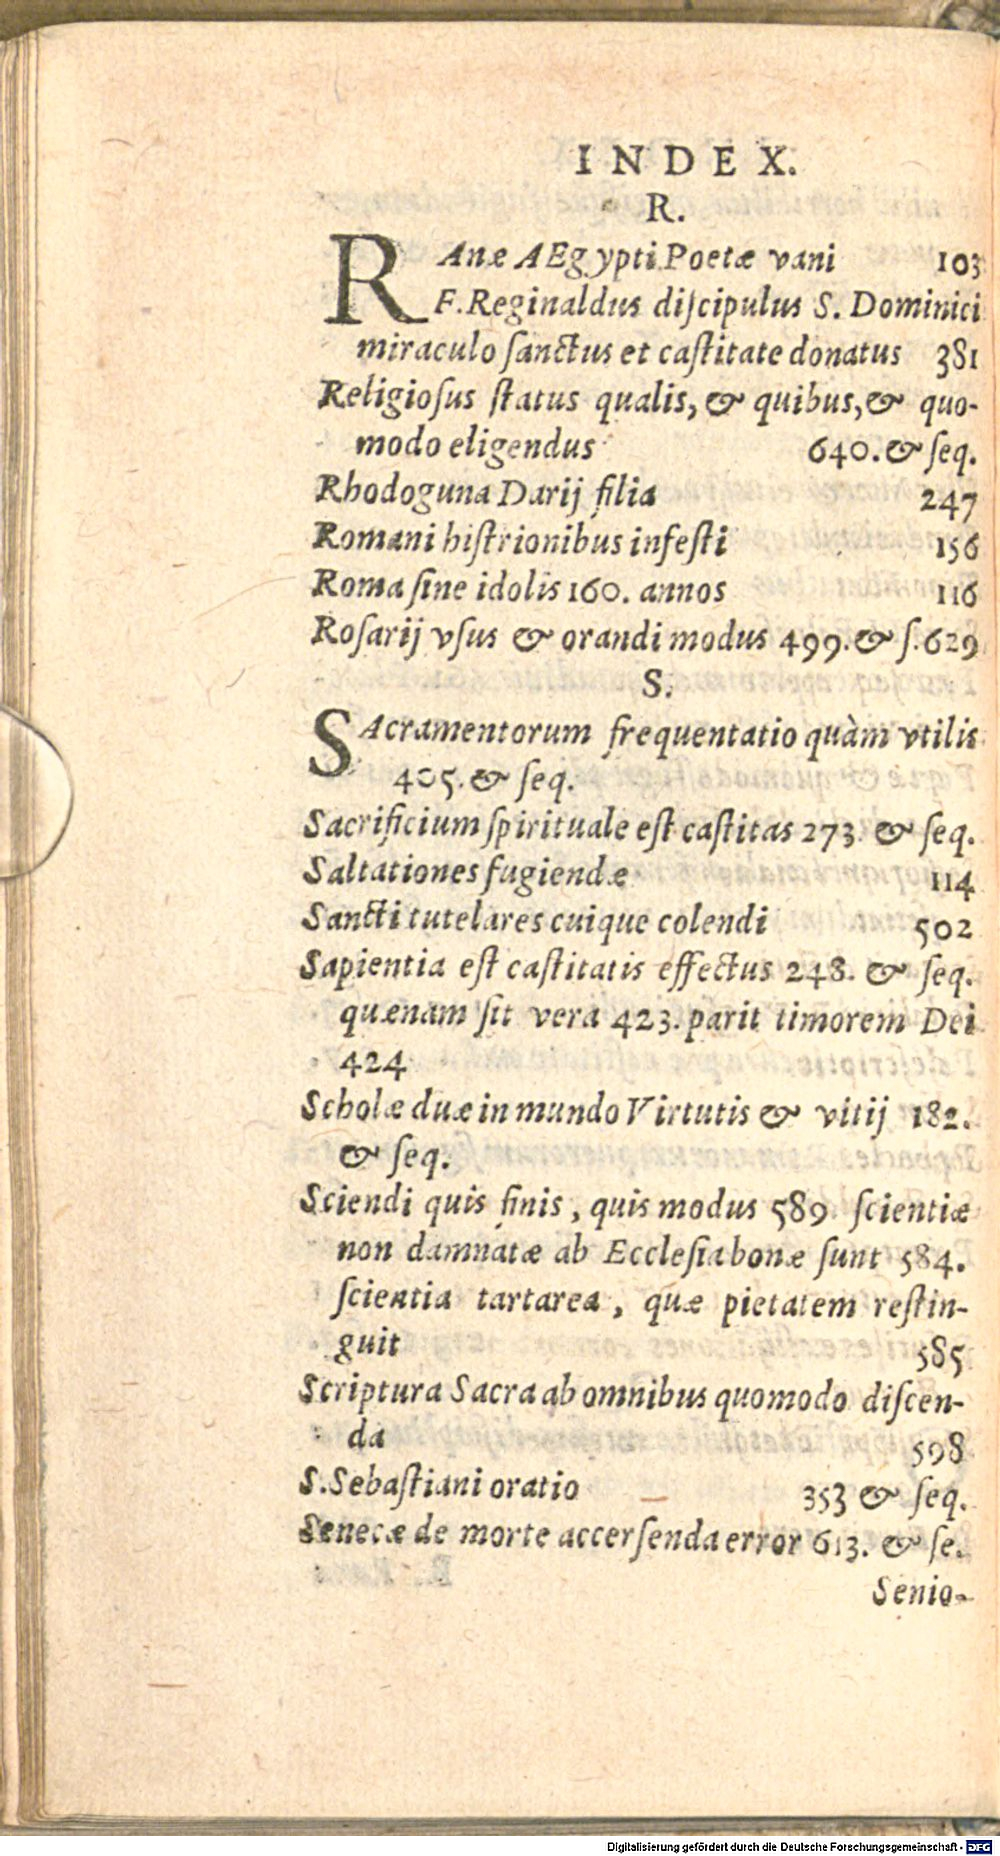 INDEX.
R.
RAnæ AEgypti Poetæ vani 103
F. Reginaldus diſcipulus S. Dominici
miraculo ſanctus et caſtitate donatus 381
Religioſus ſtatus qualis, & quibus, & quo-
modo eligendus 640. & ſeq.
Rhodoguna Darij filia 247
Romani hiſtrionibus infeſti 156
Roma ſine idolis 160. annos 116
Roſarij vſus & orandi modus 499. & ſ. 629
S.
SAcramentorum frequentatio quàm vtilis
405. & ſeq.
Sacrificium ſpirituale eſt caſtitas 273 & ſeq.
Saltationes fugiendæ 114
Sancti tutelares cuique colendi 502
Sapientia eſt caſtitatis effectus 248. & ſeq.
quænam ſit vera 423. parit timorem Dei
424
Scholæ duæ in mundo Virtutis & vitij 182.
& ſeq.
Sciendi quis finis, quis modus 589. ſcientiæ
non damnatæ ab Eccleſia bonæ ſunt 584.
ſcientia tartarea, quæ pietatem reſtin-
guit 585
Scriptura Sacra ab omnibus quomodo diſcen-
da 598
S. Sebaſtiani oratio 353 & ſeq.
Senecæ de morte accerſenda error 613. & ſe.
Senio-
Digitalisierung gefördert durch die Deutsche Forschungsgemeinschaft - DFG